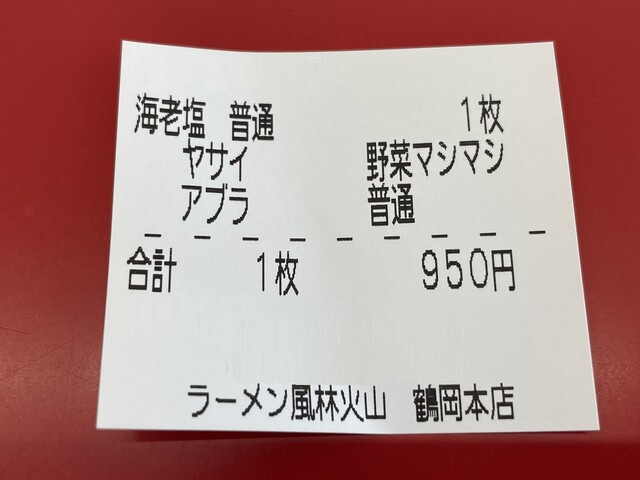 海老塩 普通 1枚
ヤサイ 野菜マシマシ
アブラ 普通
合計 1枚 950円
ラーメン風林火山 鶴岡本店